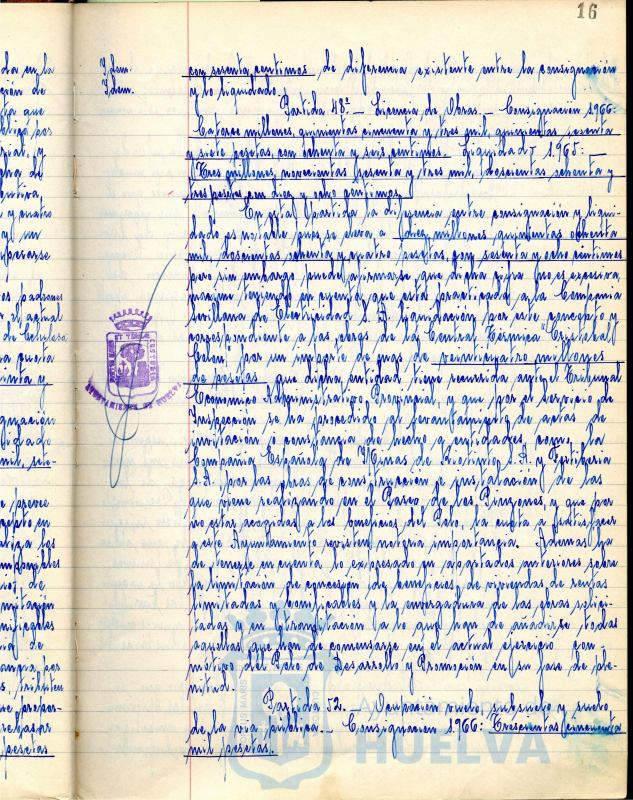 16
Idem.
Idem.
con sesenta centimos de diferencia existente entre la consignación
y lo liquidado.
Partida 48ª.- Licencia de Obras.- Consignación 1.966:
Catorce millones, quinientas cincuenta y tres mil, quinientas sesenta
y siete pesetas, con ochenta y seis centimos.- Liquidado 1.965:-
Tres millones, novecientas setenta y tres mil, doscientas setenta y
tres pesetas con diez y ocho centimos.
En esta Partida la diferencia entre consignación y liqui-
dado es notable pues se eleva a diez millones quinientas ochenta
mil, doscientas ochenta y cuatro pesetas, con sesenta y ocho centimos
pero sin embargo puede afirmarse que dicha cifra no es excesiva,
maxime teniendo en cuenta que está practicada a la Compañia
Sevillana de Electricidad S.A. liquidación por este concepto y
correspondiente a las obras de la Central Térmica "Cristobal
Colon", por un importe de mas de veinticuatro millones
de pesetas. Que dicha entidad tiene recurrida ante el Tribunal
Economico Administrativo Provincial, y que por el Servicio de
Inspección se ha procedido al levantamiento de actas de
invitación o constancia de hecho a entidades, como la
Compañia Española de Minas de Riotinto S.A. y Fosforico
S.A. por las obras de construcción e instalación de las
que viene realizando en el Paseo de los Pinzones, y que por
no estar acogidas a los beneficios del Polo, la cuota a satisfacer
a este Ayuntamiento revisten notoria importancia. Ademas ha
de tenerse en cuenta lo expresado en apartados anteriores sobre
la limitación de concesión de beneficios de viviendas de rentas
limitadas y bonificables y la envergadura de las obras solici-
tadas y en tramitación a lo que han de añadirse todas
aquellas que han de comenzarse en el actual ejercicio con
motivo del Polo de Desarrollo y Promoción en su fase de ple-
nitud.
Partida 52.- Ocupación vuelo, subsuelo y suelo
de la via publica.- Consignación 1.966: Trescientas cincuenta
mil pesetas.
AYUNTAMIENTO DE HUELVA
HUELVA